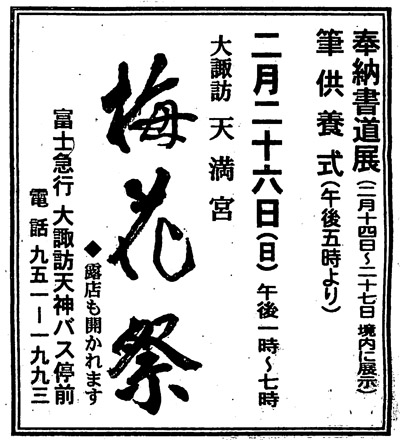 奉納書道展(二月十四日~二十七日 境内に展示)
筆供養式(午後五時より)
二月二十六日(日)午後一時~七時
大諏訪 天満宮
梅花祭
◆露店も開かれます
富士急行 大諏訪天神バス停前
電話 九五一ー一九九三